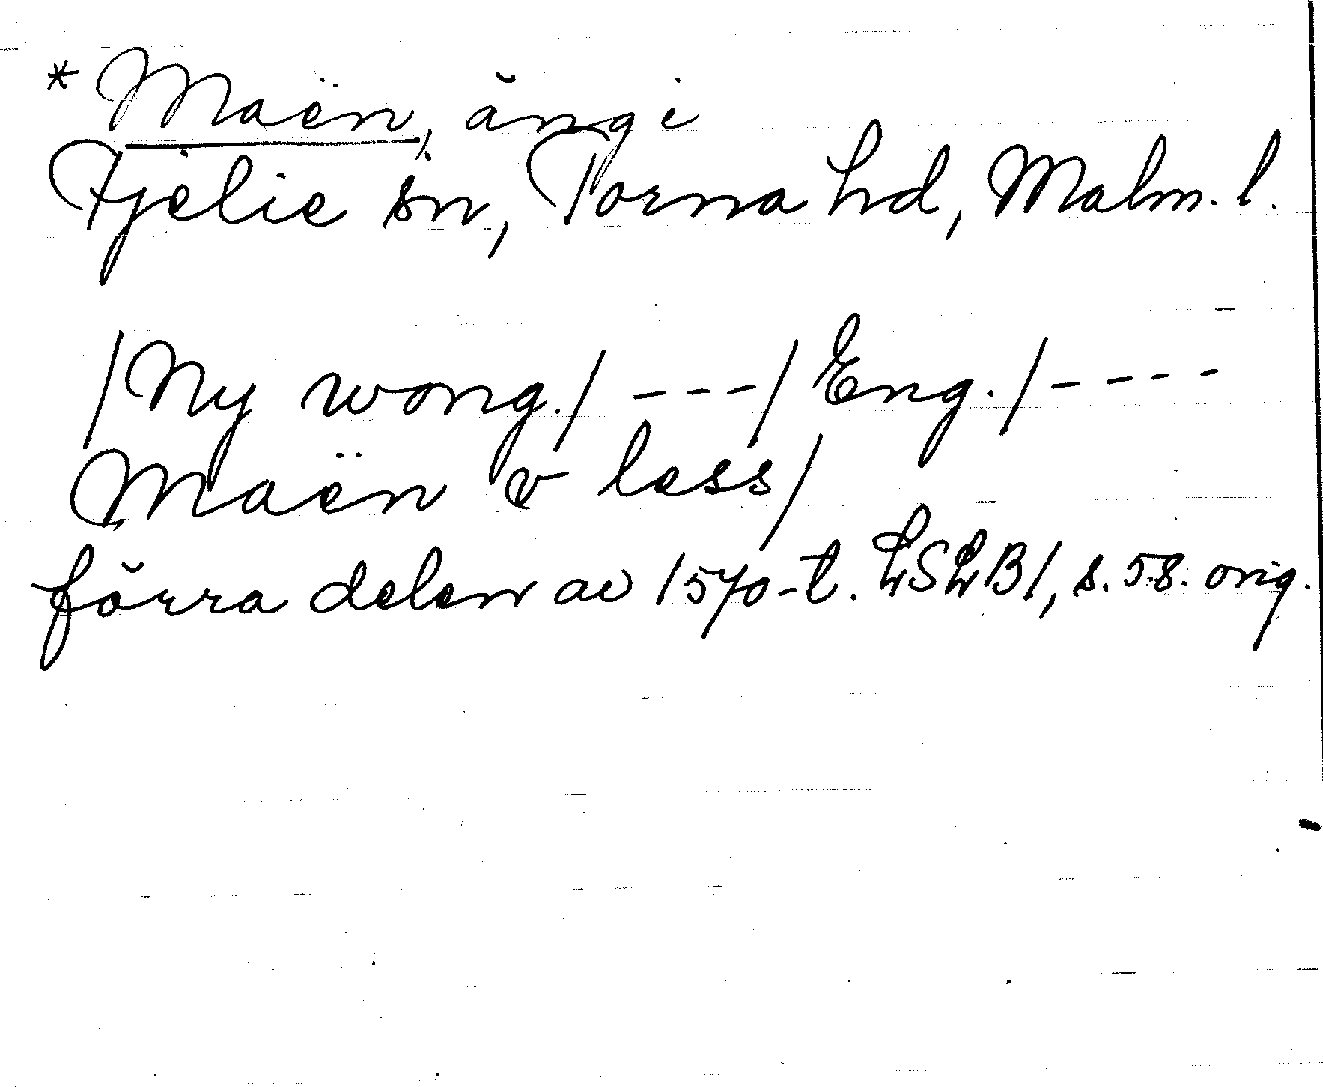 * Maën, äng i
Fjelie sn, Torna hd, Malm. l.
/Ny wong./ ---/ Eng./----
Maën v less/
förra delen av 1570-t. LSLB1, s. 58. orig.